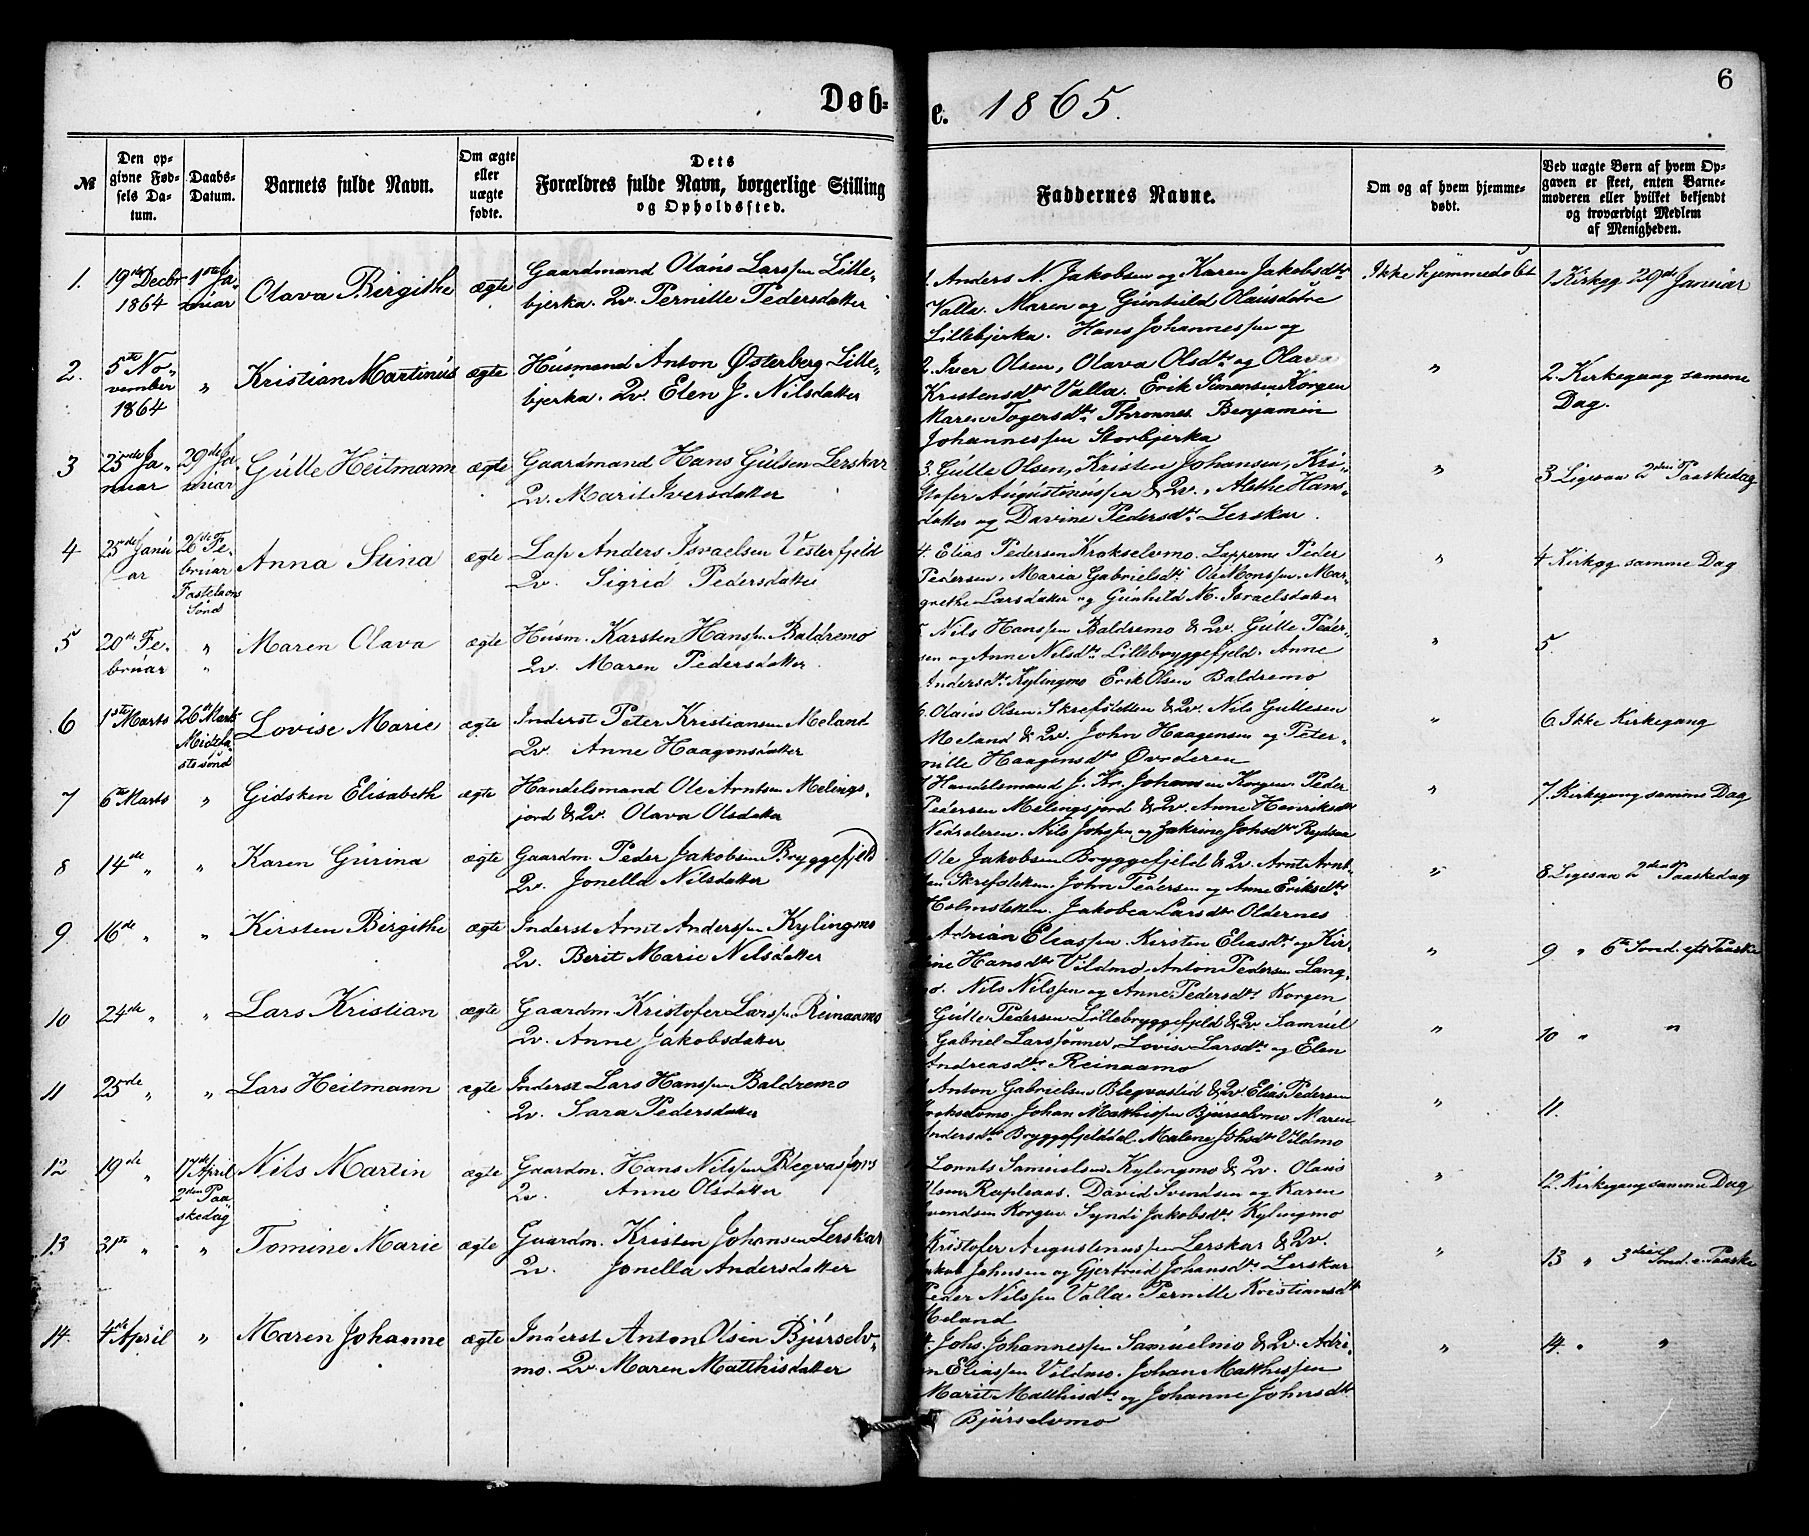 Døb-
e. 1865.
6
№
Den op-
givne Fød-
sels Da-
tum.
Daabs-
Datum.
Barnets fulde Navn.
Om ægte
eller
uægte
fødte.
Dets
Forældres fulde Navn, borgerlige Stilling
og Opholdssted.
Faddernes Navne.
Om og af hvem hjemme-
døbt.
Ved uægte Børn af hvem Op-
gaven er skeet, enten Barne-
moderen eller hvilket bekjendt
og troværdigt Medlem
af Menigheden.
1.
19de Decbr
1864
1ste Ja-
nuar
Olava Birgithe
ægte
Gaardmand Olaus Larssen Lille-
bjerka. Qv. Pernille Pedersdatter
1. Anders N. Jakobsen og Karen Jakobsdtr
Valla. Maren og Gunhild Olausdøtre
Lillebjerka. Hans Johannessen og
Ikke hjemmedøbt
1 Kirkg 29de Januar
2.
5te No-
vember
1864
"
Kristian Martinus
ægte
Husmand Anton Østerberg Lille-
bjerka. Qv. Elen J. Nilsdatter
2. Iver Olsen, Olava Olsdtr og Olava
Kristensdtr Valla. Erik Simonsen Korgen
Maren Togersdtr Thronnes Benjamin
Johannessen Storbjerka
"
2. Kirkegang samme
Dag.
3
23de Ja-
nuar
29de Ja-
nuar
Gulle Heitmann
ægte
Gaardmand Hans Gulsen Lerskar
Qv. Marit Iversdatter
3. Gulle Olsen, Kristen Johansen, Kri-
stofer Augustinussen & Qv., Alethe Hans-
datter og Davine Pedersdtr Lerskar.
"
3 Ligesaa 2den Paaskedag
4
23de Janu
ar
26de Fe-
bruar
Fastelavns
Sønd
Anna Stina
ægte
Lap Anders Israelsen Vesterfjeld
Qv. Sigrid Pedersdatter
4. Elias Pedersen Krokselvmo. Lapperne Peder
Pedersen, Maria Gabrielsdtr Ole Monssen. Mar-
grethe Larsdatter og Gunhild M. Israelsdatter
"
4 Kirkgg samme Dag
5
20de Fe-
bruar
"
"
Maren Olava
ægte
Husm. Karsten Hanssen Baldremo
Qv. Maren Pedersdatter
5 Nils Hanssen Baldremo & Qv. Gulle Peder-
sen og Anne Nilsdtr Lillebryggefjeld. Anne
Andersdtr Kylingmo Erik Olsen Baldremo
"
5.
6
1ste Marts
26de Marts
Midfa-
stesønd
Lovise Marie
ægte
Inderst Peter Kristiansen Meland
Qv. Anne Haagensdatter
6. Olaus Olsen Skrefsletten & Qv. Nils Gullesen
Meland & Qv. John Haagensen og Peter-
nille Haagensdtr Øvrderen
"
6 Ikke Kirkegang
7
6te Marts
"
Gidsken Elisabeth
ægte
Handelsmand Ole Arntsen Melings-
jord & Qv. Olava Olsdatter
7 Handelsmand J. Kr. Johansen Korgen. Peder
Pedersen Melingsjord & Qv. Anne Henriksdtr
Nedreleren. Nils Johssen og Zakrine Johsdtr Rydsaa
"
7. Kirkegang samme Dag
8
14de "
"
Karen Gurina
ægte
Gaardm. Peder Jakobsen Bryggefjeld
Qv. Jonella Nilsdatter
Ole Jakobsen Bryggefjeld & Qv. Arnt Arnt-
sen Skrefsletten. John Pedersen og Anne Eriksdtr
Holmsletten. Jakobea Larsdtr Oldernes
"
8 Ligesaa 2den Paaskedag
9
16de "
"
Kirsten Birgithe
ægte
Inderst Arnt Anderssen Kylingmo
Qv. Berit Marie Nilsdatter
Adrian Eliassen. Kirsten Eliasdtr og Kir-
ine Hansdtr Vildmo. Anton Pedersen Lang-
mo. Nils Nilssen og Anne Pedersdtr Korgen
"
9 " 6te Sønd. eft Paaske
10
24de "
"
Lars Kristian
ægte
Gaardm. Kristofer Larssen Reinaamo
Qv. Anne Jakobsdatter
Gulle Pedersen Lillebryggefjeld & Qv. Samuel
Gabriel Larssønner, Lovise Larsdtr og Elen
Andreasdtr Reinaamo
"
10 " "
11
25de "
"
Lars Heitmann
ægte
Inderst Lars Hanssen Baldremo
Qv. Sara Pedersdatter
Anton Gabrielsen Blegvastid & Qv. Elias Pedersen
Krokselvmo. Johan Matthissen Bjurselvmo Maren
Andersdtr Bryggefjelddal. Malene Johsdtr Vildmo
"
11.
12
19de "
17de April
2den Paa
skedag
Nils Martin
ægte
Gaardm. Hans Nilssen Blegvasfors
Qv. Anne Olsdatter
Lonnts Samuelsen Kylingmo & Qv. Olaus
Olsen Rapleaas. David Svendsen og Karen
Svendsen Korgen. Syndi Jakobsdtr Kylingmo
"
12. Kirkegang samme Dag
13
31te "
"
Tomine Marie
ægte
Gaardm. Kristen Johansen Lerskar
Qv. Jonella Andersdatter
Kristofer Augustinussen Lerskar & Qv.
Johnsen og Gjertrud Johansdtr Lerskar
Peder Nilssen Valla. Pernille Kristiansdtr
Meland
"
13 " 3die Sønd. e. Paaske
14.
4de April
"
Maren Johanne
ægte
Inderst Anton Olsen Bjurselv-
mo. Qv. Maren Matthisdatter
Johs. Johannessen Samuelmo & Qv. Adri-
an Eliassen Vildmo. Johan Matthissen
Marit Matthisdtr og Johanne Johnsdtr
Bjurselvmo
"
14. " "